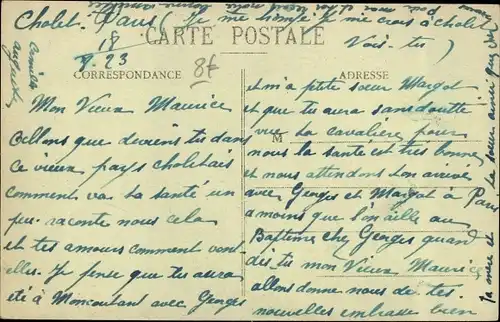 Cholet-Paris (Je me trompe je me crois à cholet
Vois-tu)
18
9.23
8f
CARTE POSTALE
CORRESPONDANCE
ADRESSE
M
Mon Vieux Maurice
Allons que deviens tu dans
ce vieux pays choletais
comment va ta santé un
peu. raconte nous cela
et tes amours comment vont
elles. Je pense que tu auras
été à Moncoutant avec Georges
et m'a petite sœur Margot
et que tu auras sans doute
vu ta cavalière pour
nous la santé est très bonne
et nous attendons ton arrivée
avec Georges et Margot à Paris
a moins que l'on aille au
Baptême chez Georges quand
dis tu mon Vieux Maurice
allons donne nous de tes
nouvelles embrasse bien
ta mère et ta sœur ainsi que